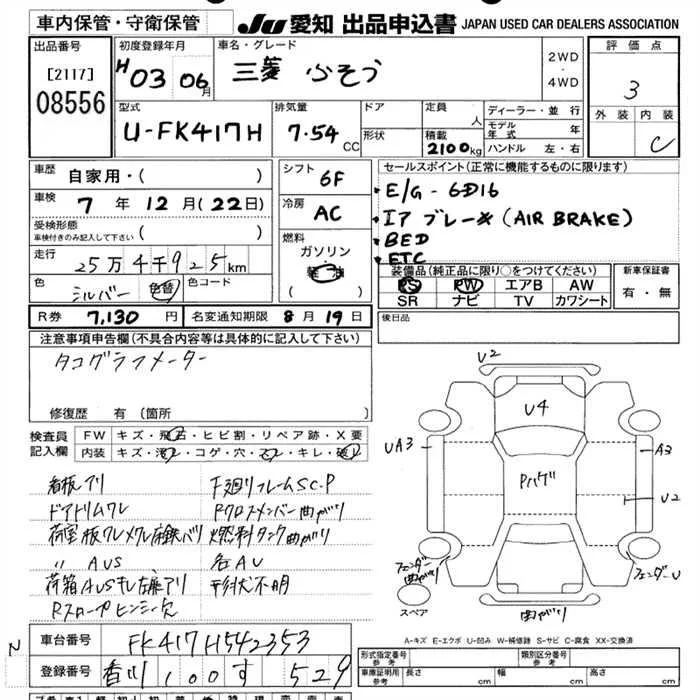 車内保管・守衛保管
JU 愛知 出品申込書 JAPAN USED CAR DEALERS ASSOCIATION
出品番号
[2117]
08556
初度登録年月
H03 06月
車名・グレード
三菱 ふそう
2WD
・
4WD
評価点
3
外装 内装
C
型式
U-FK417H
排気量
7.54 CC
ドア
形状
定員
人
積載
2100kg
ディーラー・並行
モデル年式 年
ハンドル 左・右
車歴
自家用・( )
車検 7年 12月(22日)
受検形態
車検付きのみ記入して下さい ( )
走行
25万4千925km
色
シルバー 色替
色コード
シフト
6F
冷房
AC
燃料
ガソリン
軽油
( )
セールスポイント(正常に機能するものに限ります)
E/G-6D16
エアブレーキ(AIR BRAKE)
BED
ETC
装備品(純正品に限り○をつけてください)
PS PW エアB AW
SR ナビ TV カワシート
新車保証書
有・無
R券 7,130円 名変通知期限 8月19日
後日品
注意事項申告欄(不具合内容等は具体的に記入して下さい)
タコグラフメーター
修復歴 有(箇所
検査員
記入欄
FW キズ・飛石・ヒビ割・リペア跡・X要
内装 キズ・汚レ・コゲ・穴・スレ・キレ・破レ
看板アリ
ドアトリムワレ
F廻リフレームSC.P
Rクロスメンバー曲がり
燃料タンク曲がり
〃 AUS
各AU
形状不明
V2
U4
UA3
A3
Pハゲ
U2
フェンダー曲がり
フェンダーU
スペア
曲がり
A-キズ E-エクボ U-凹み W-補修跡 S-サビ C-腐食 XX-交換済
N
車台番号 FK417H542353
登録番号 香川 100 す 529
形式指定番号
参考
類別区分番号
参考
車庫証明寸法
参考
長さ 幅 高さ
cm cm cm